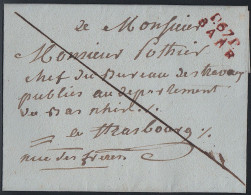 P.67.P.
BARR
De Monsieur
Monsieur Pothier
chef du Bureau des travaux
publics au departement
du Bas Rhin
a Strasbourg
rue des freres